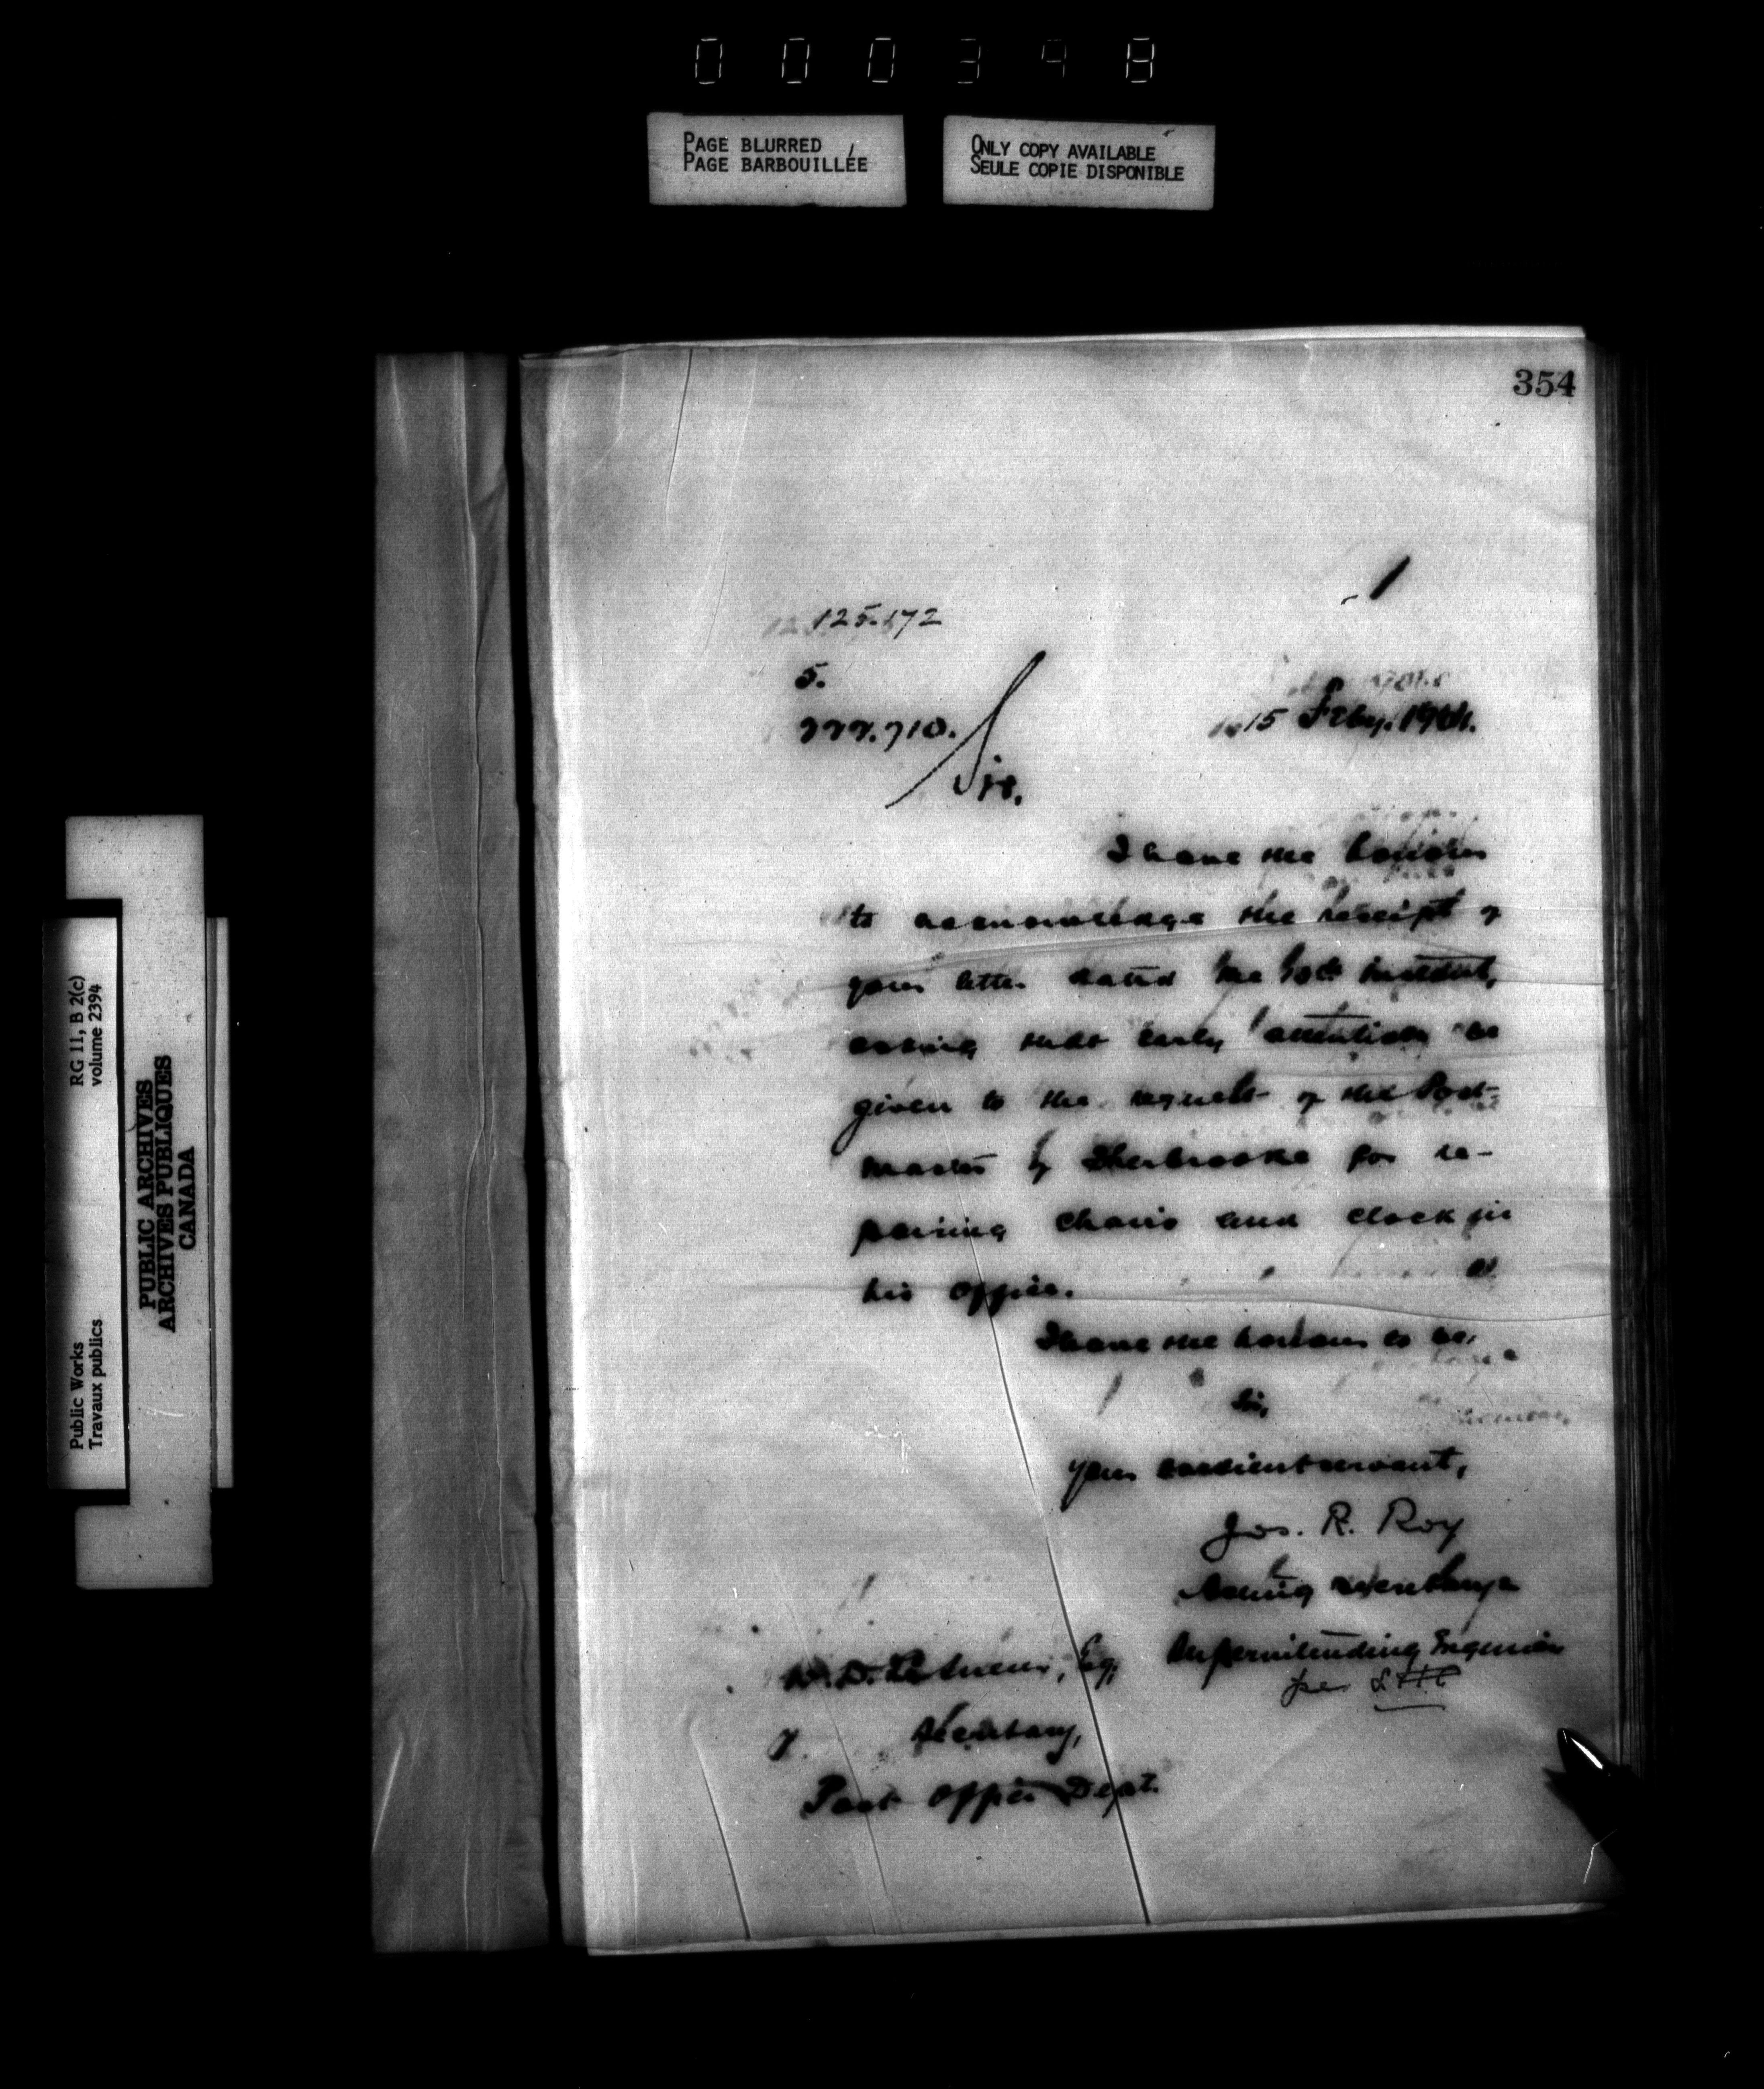 000348
PAGE BLURRED
PAGE BARBOUILLÉE
ONLY COPY AVAILABLE
SEULE COPIE DISPONIBLE
354
125.172
5.
777.710.
15 Feby. 1901.
Sir.
I have the honour
to acknowledge the receipt of
your letter dated the instant,
asking that early attention be
given to the request of the Post-
master of Sherbrooke for re-
pairing chairs and clock in
his office.
I have the honour to be,
Sir,
Your obedient servant,
Jos. R. Roy
Acting Secretary
Superintending Engineer
per
W. D. Esq,
Secretary,
Post Office Dept.
RG 11, B 2(c)
volume 2394
Public Works
Travaux publics
PUBLIC ARCHIVES
ARCHIVES PUBLIQUES
CANADA